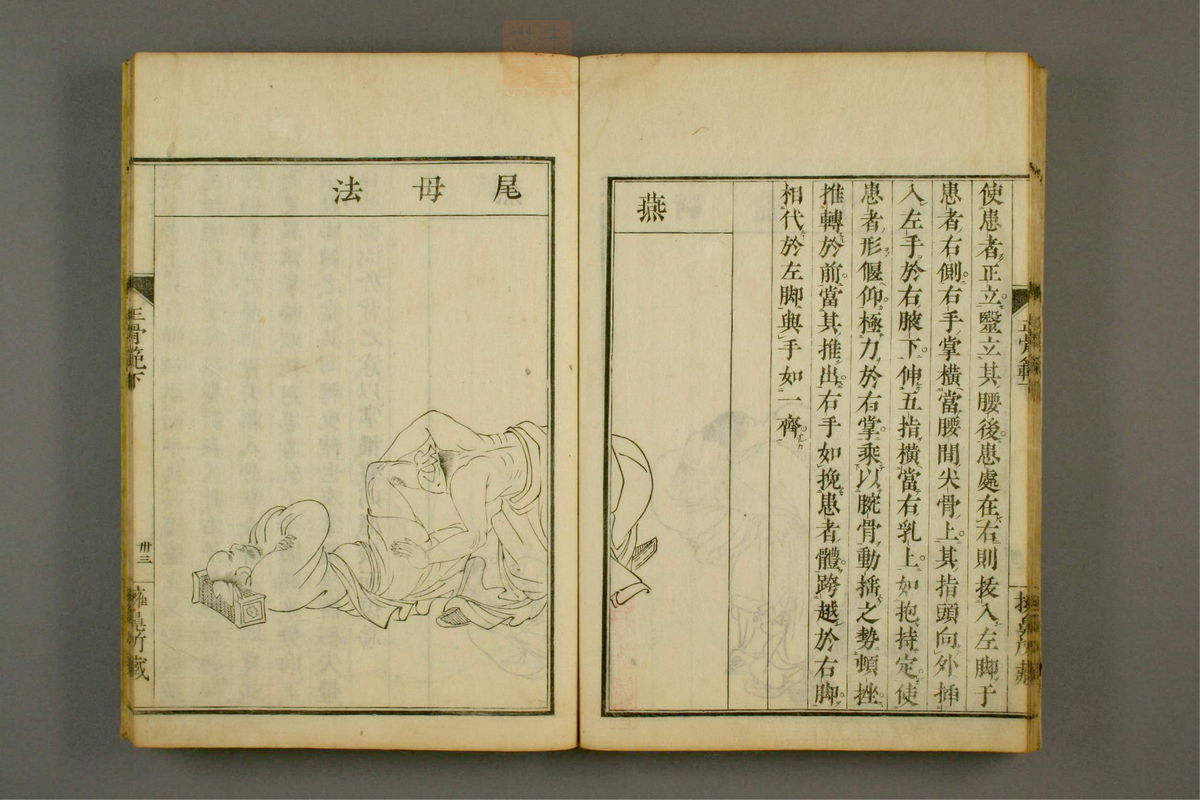 使患者正立毉立其腰後患處在右則扱入左脚于
患者右側右手掌橫當腰間尖骨上其指頭向外揷
入左手於右腋下伸五指橫當右乳上如抱持定使
患者形偃仰極力於右掌乘以腕骨動搖之勢頓挫
推轉於前當其推出右手如挽患者體跨越於右脚
相代於左脚與手如一齊
燕
尾母法
正骨範下
卅三